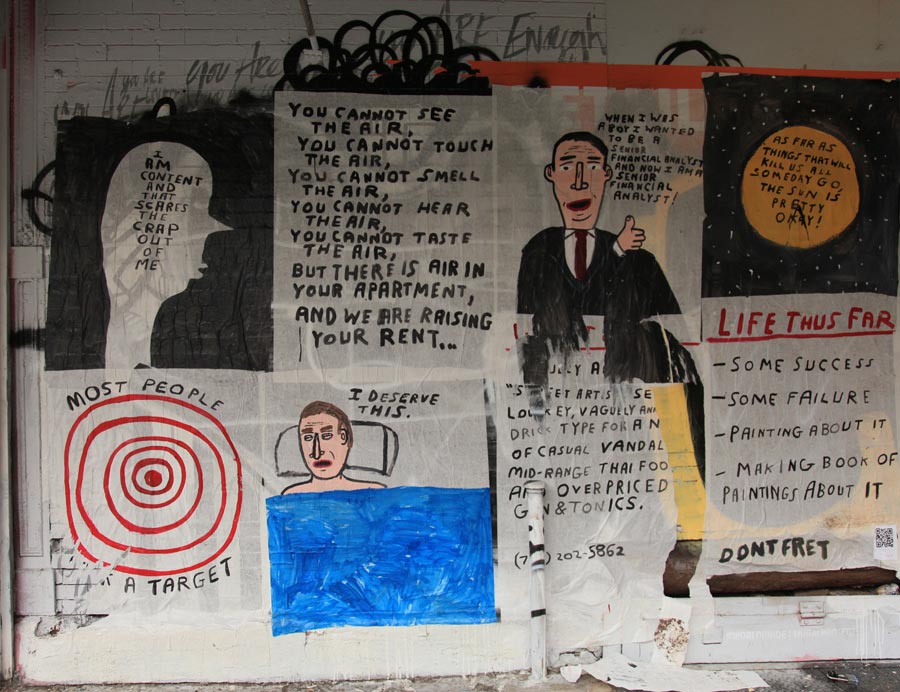 You Are Enough
you Are
I
AM
CONTENT
AND
THAT
SCARES
THE
CRAP
OUT
OF
ME
YOU CANNOT SEE
THE AIR,
YOU CANNOT TOUCH
THE AIR,
YOU CANNOT SMELL
THE AIR,
YOU CANNOT HEAR
THE AIR,
YOU CANNOT TASTE
THE AIR,
BUT THERE IS AIR IN
YOUR APARTMENT,
AND WE ARE RAISING
YOUR RENT...
WHEN I WAS
A BOY I WANTED
TO BE A
SENIOR
FINANCIAL ANALYST
AND NOW I AM A
SENIOR
FINANCIAL
ANALYST!
AS FAR AS
THINGS THAT WILL
KILL US ALL
SOMEDAY GO,
THE SUN IS
PRETTY
OKAY!
MOST PEOPLE
A TARGET
I DESERVE
THIS.
VAGUELY
TYPE FOR AN
OF CASUAL VANDAL
MID-RANGE THAI FOO
AND OVERPRICED
GIN & TONICS.
202-5862
LIFE THUS FAR
- SOME SUCCESS
- SOME FAILURE
- PAINTING ABOUT IT
- MAKING BOOK OF
PAINTINGS ABOUT IT
DONT FRET